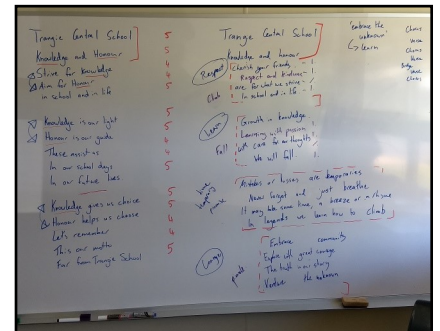 Trangie Central School 5
Knowledge and Honour 5
Strive for Knowledge 4
Aim for Honour 4
in school and in life 5
Knowledge is our light 5
Honour is our guide 5
These assist us 4
In our school days 5
In our future lives 5
Knowledge gives us choice 5
Honour helps us choose 5
Let's remember 4
This our motto 4
For from Trangie School 5
Trangie Central School
Knowledge and honour
Respect
Cherish your friends
Respect and kindness
are for what we strive
In school and in life
Learn
Growth in knowledge
Learning with passion
with care for our thoughts
We will fall
Fall
Mistakes or losses are temporaries
Never forget and just breathe
It may take some time, a breeze or a rhyme
In legends we learn how to climb
Embrace community
Explore with great courage
The truth in our story
Venture the unknown
'embrace the
unknown'
↳ learn
Chorus
Verse
Chorus
Verse
Bridge
Verse
Chorus